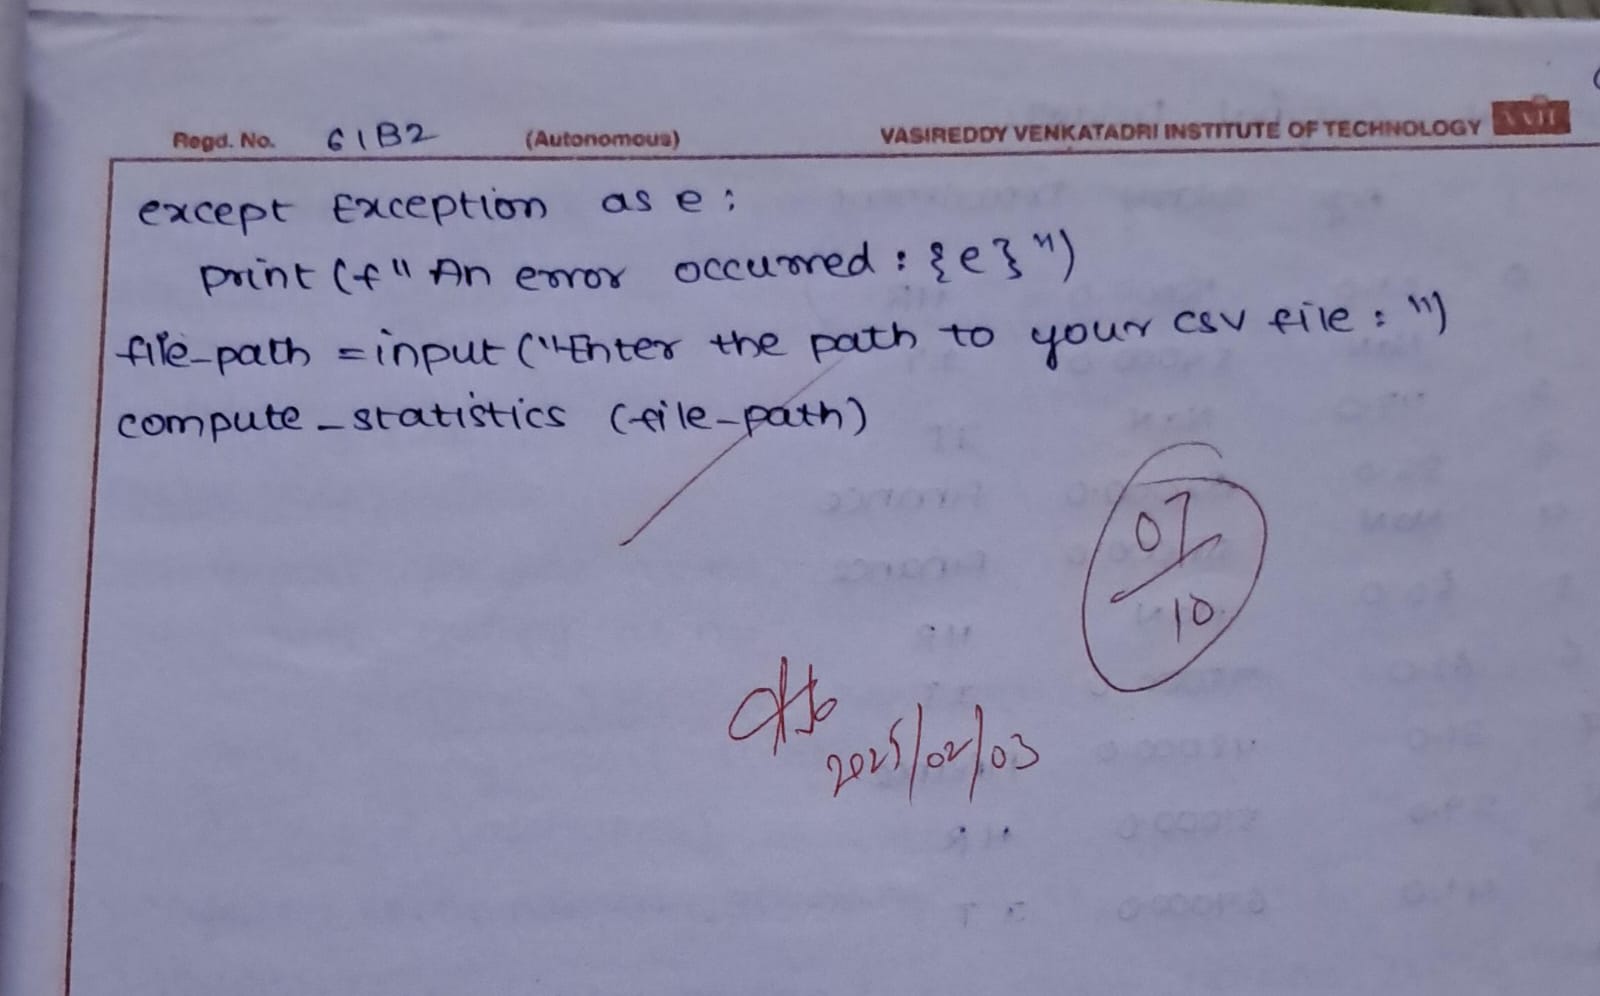 Regd. No. 61B2 (Autonomous) VASIREDDY VENKATADRI INSTITUTE OF TECHNOLOGY VVIT
except Exception as e:
print (f" An error occurred : {e}")
file_path = input ("Enter the path to your csv file : ")
compute_statistics (file_path)
07
10
2025/02/03